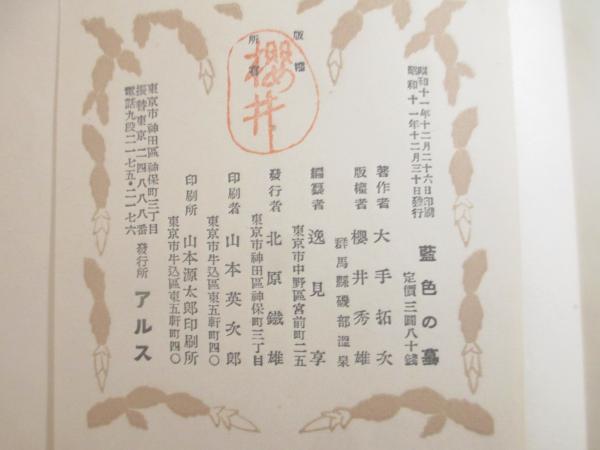 昭和十一年十二月二十六日印刷
昭和十一年十二月三十日發行
藍色の墓
定價三圓八十錢
著作者 大手拓次
版權者 櫻井秀雄
群馬縣磯部溫泉
編纂者 逸見享
東京市中野區宮前町二五
發行者 北原鐵雄
東京市神田區神保町三丁目
印刷者 山本英次郎
東京市牛込區東五軒町四〇
印刷所 山本源太郎印刷所
東京市牛込區東五軒町四〇
發行所 アルス
東京市神田區神保町三丁目
振替東京二四八八八番
電話九段二一七五・二一七六
版權
所有
櫻井